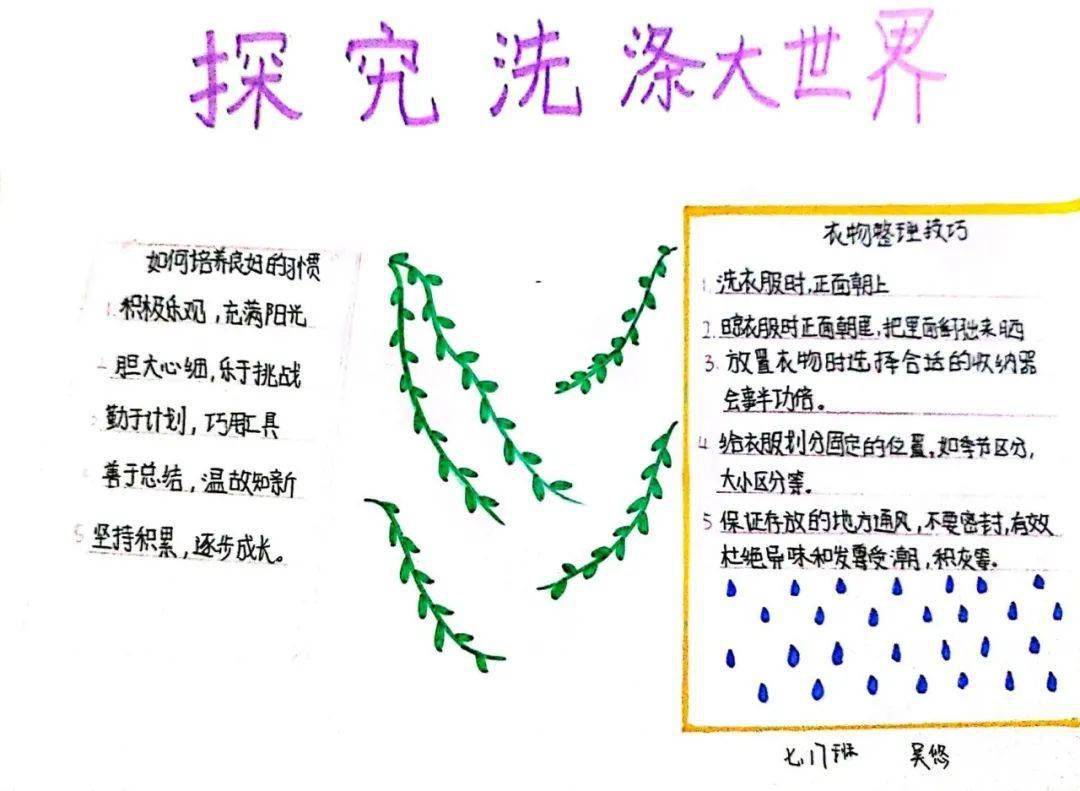 探究洗涤大世界
如何培养良好的习惯
1.积极乐观，充满阳光
胆大心细，乐于挑战
勤于计划，巧用工具
善于总结，温故知新
5 坚持积累，逐步成长。
衣物整理技巧
1.洗衣服时，正面朝上
2.晾衣服时正面朝里，把里面翻出来晒
3.放置衣物时选择合适的收纳器
会事半功倍。
4 给衣服划分固定的位置。如季节区分，
大小区分等。
5 保证存放的地方通风，不要密封，有效
杜绝异味和发霉受潮，积灰等。
七.17班 吴悠